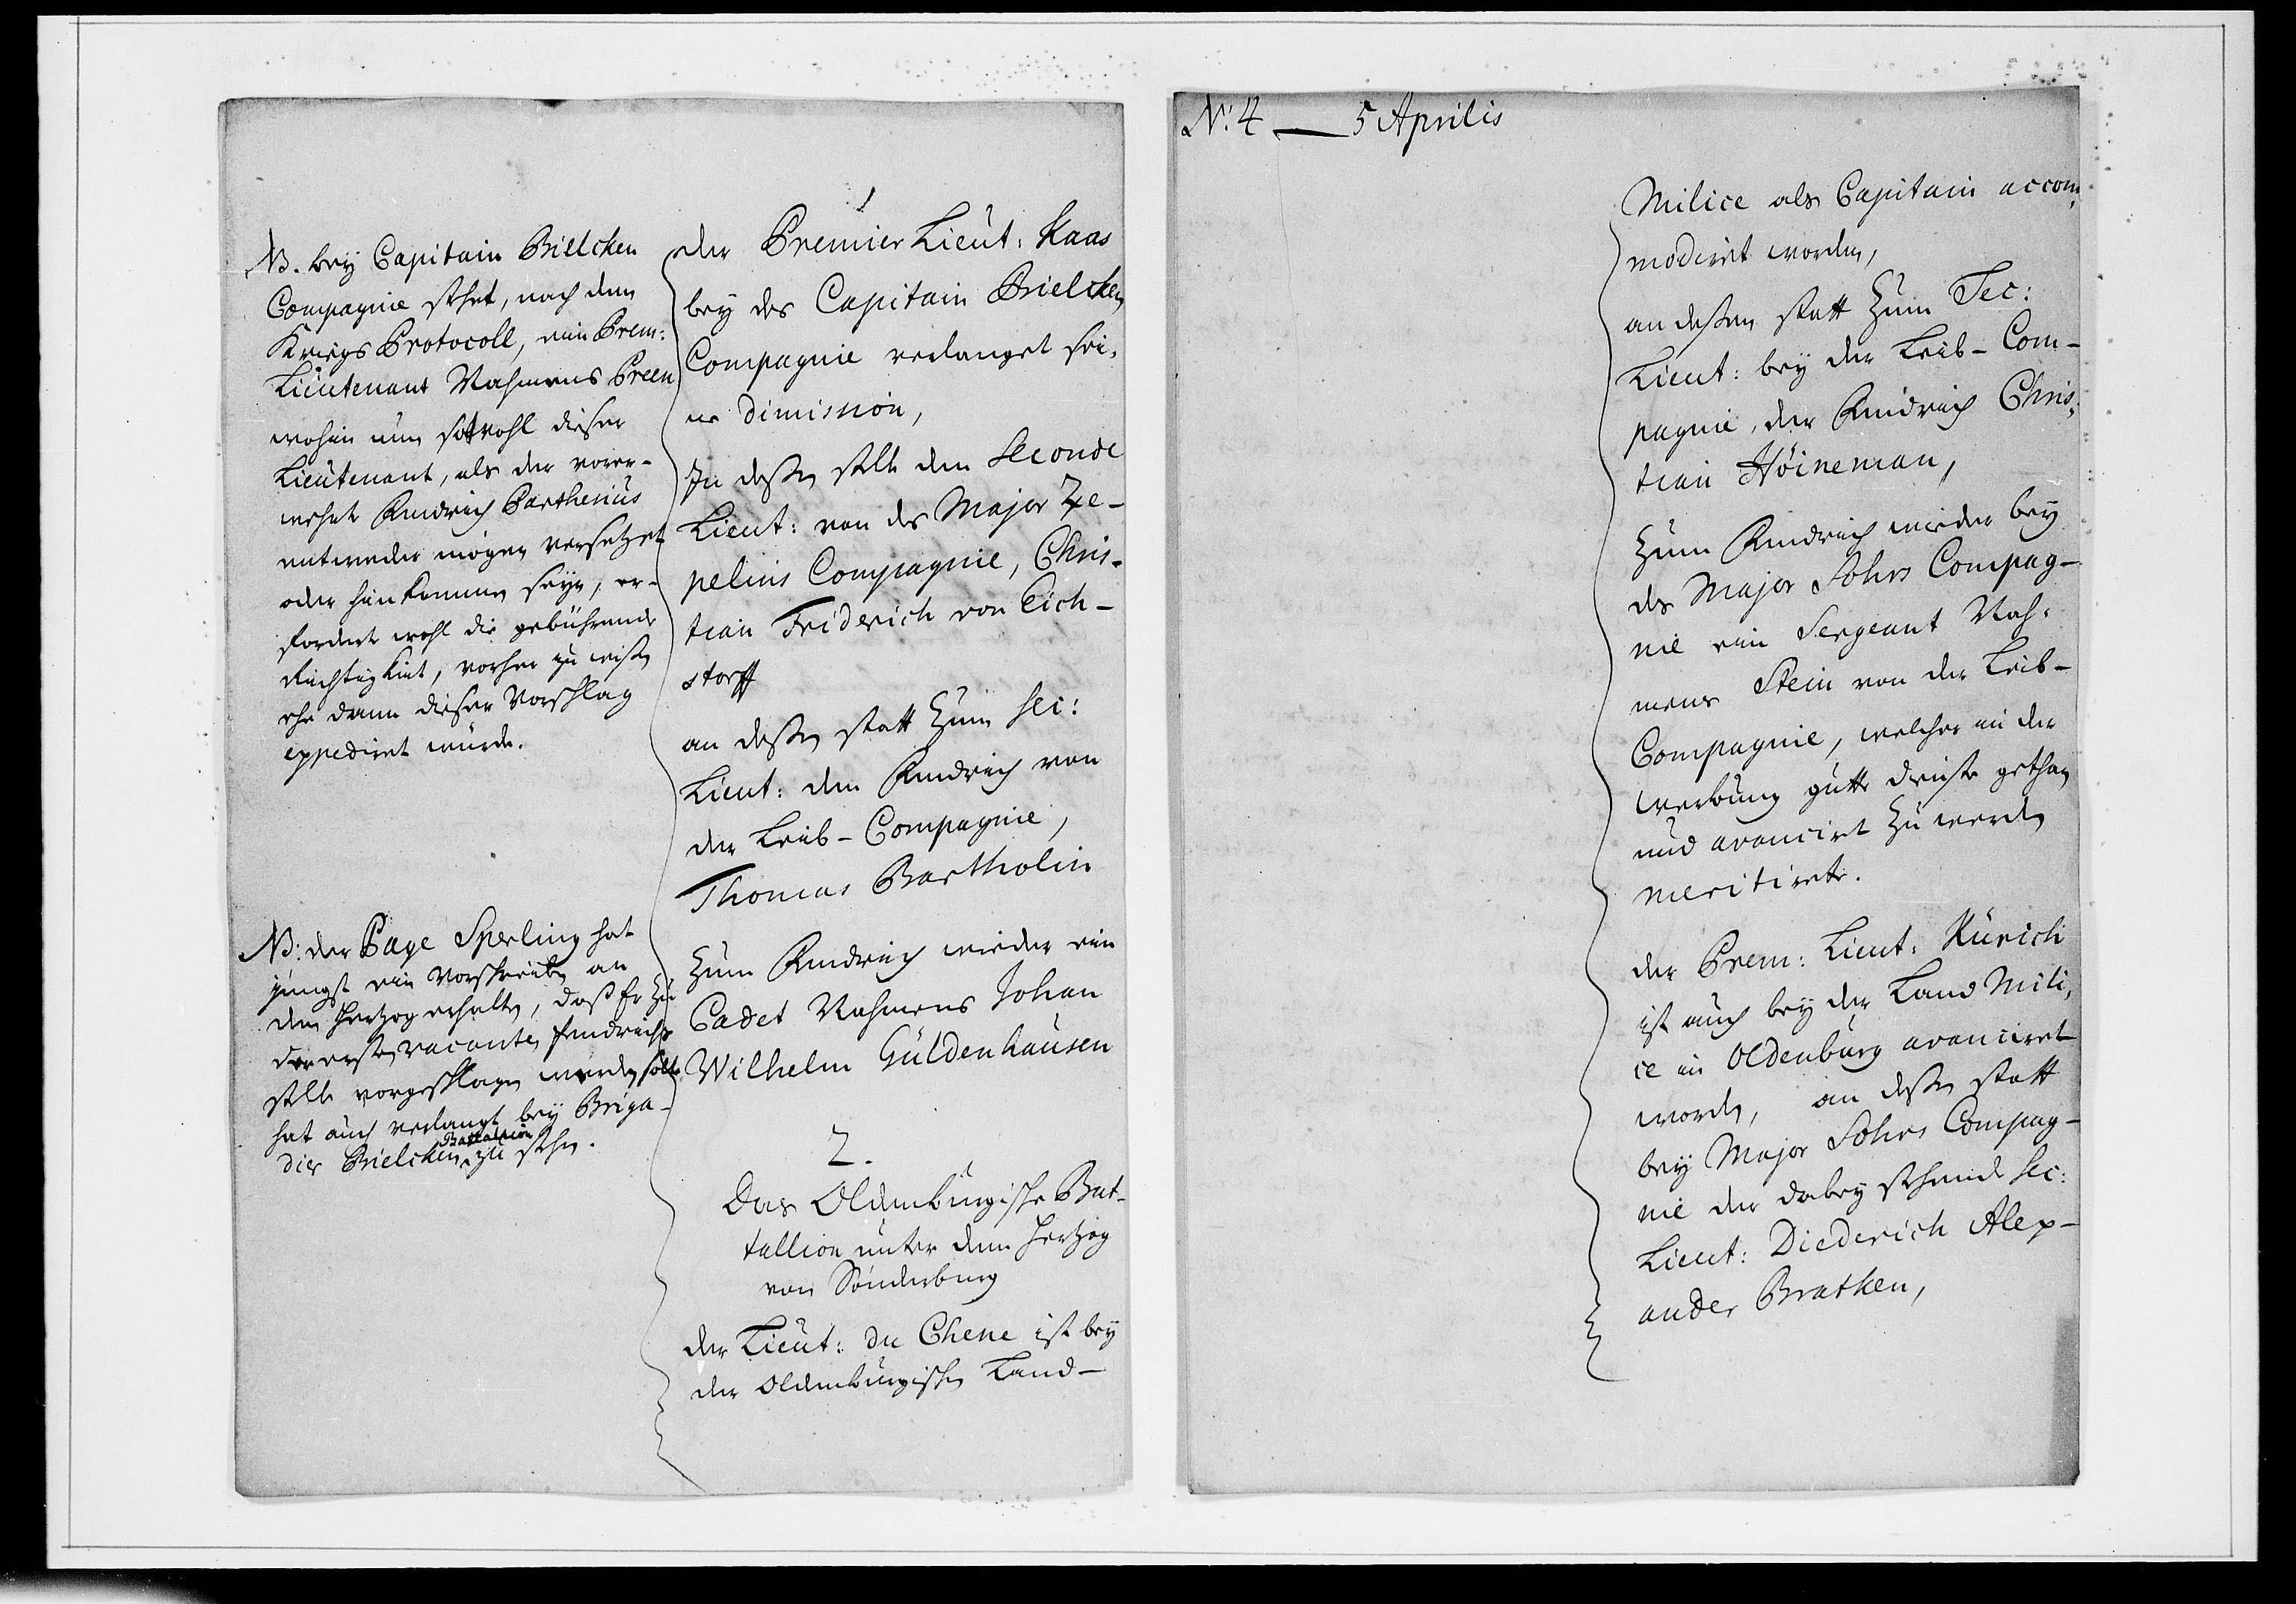 NB. bey Capitain Bielcken
Compagnie stehet, nach dem
Kriegs Protocoll, ein Prem:
Lieutenant Nahmens Preen
wohin nun sowohl dieser
Lieutenant, als der vorer-
wehnte Fendrich Barthesius
entweder mögen versetzet
oder hinkommen seyn, er-
fordert wohl die gebührende
Richtigkeit, vorher zu wißen
ehe dann dieser Vorschlag
expediret würde.
NB: der Page Sperling hat
jüngst ein Vorschreiben an
den Hertzog erhalten, daß Er zu
der ersten vacanten Fendrichs
stelle vorgeschlagen werden solte
hat auch verlangt bey Briga-
dier Bielcken Battallion zu stehen.
1
der Premier Lieut: Kaas
bey des Capitain Bielcken
Compagnie verlanget sei-
ne dimission,
In deßen stelle den Seconde
Lieut: von des Major Ze-
pelins Compagnie, Chris-
tian Friderich von Eich-
storff
an deßen statt zum Sec:
Lieut: den Fendrich von
der Leib-Compagnie,
Thomas Bartholin
Zum Fendrich wieder ein
Cadet Nahmens Johan
Wilhelm Güldenhausen
2.
Das Oldenburgische Bat-
tallion unter dem Hertzog
von Sonderburg
der Lieut: du Chene ist bey
der Oldenburgischen Land-
N: 4 — 5 Aprilis
Milice als Capitain accom-
modiret worden,
an deßen statt zum Sec:
Lieut: bey der Leib-Com-
pagnie, der Fendrich Chris-
tian Höineman,
Zum Fendrich wieder bey
des Major Sohrs Compag-
nie ein Sergeant Nah-
mens Stein von der Leib-
Compagnie, welcher in der
Werbung gutte dienste gethan
und avanciret zu werden
meritirete.
der Prem: Lieut: Künich
ist auch bey der Land Mili-
ce in Oldenburg avanciret
worden, an deßen statt
bey Major Sohrs Compag-
nie der dabey stehende Sec:
Lieut: Diederich Alex-
ander Brathen,